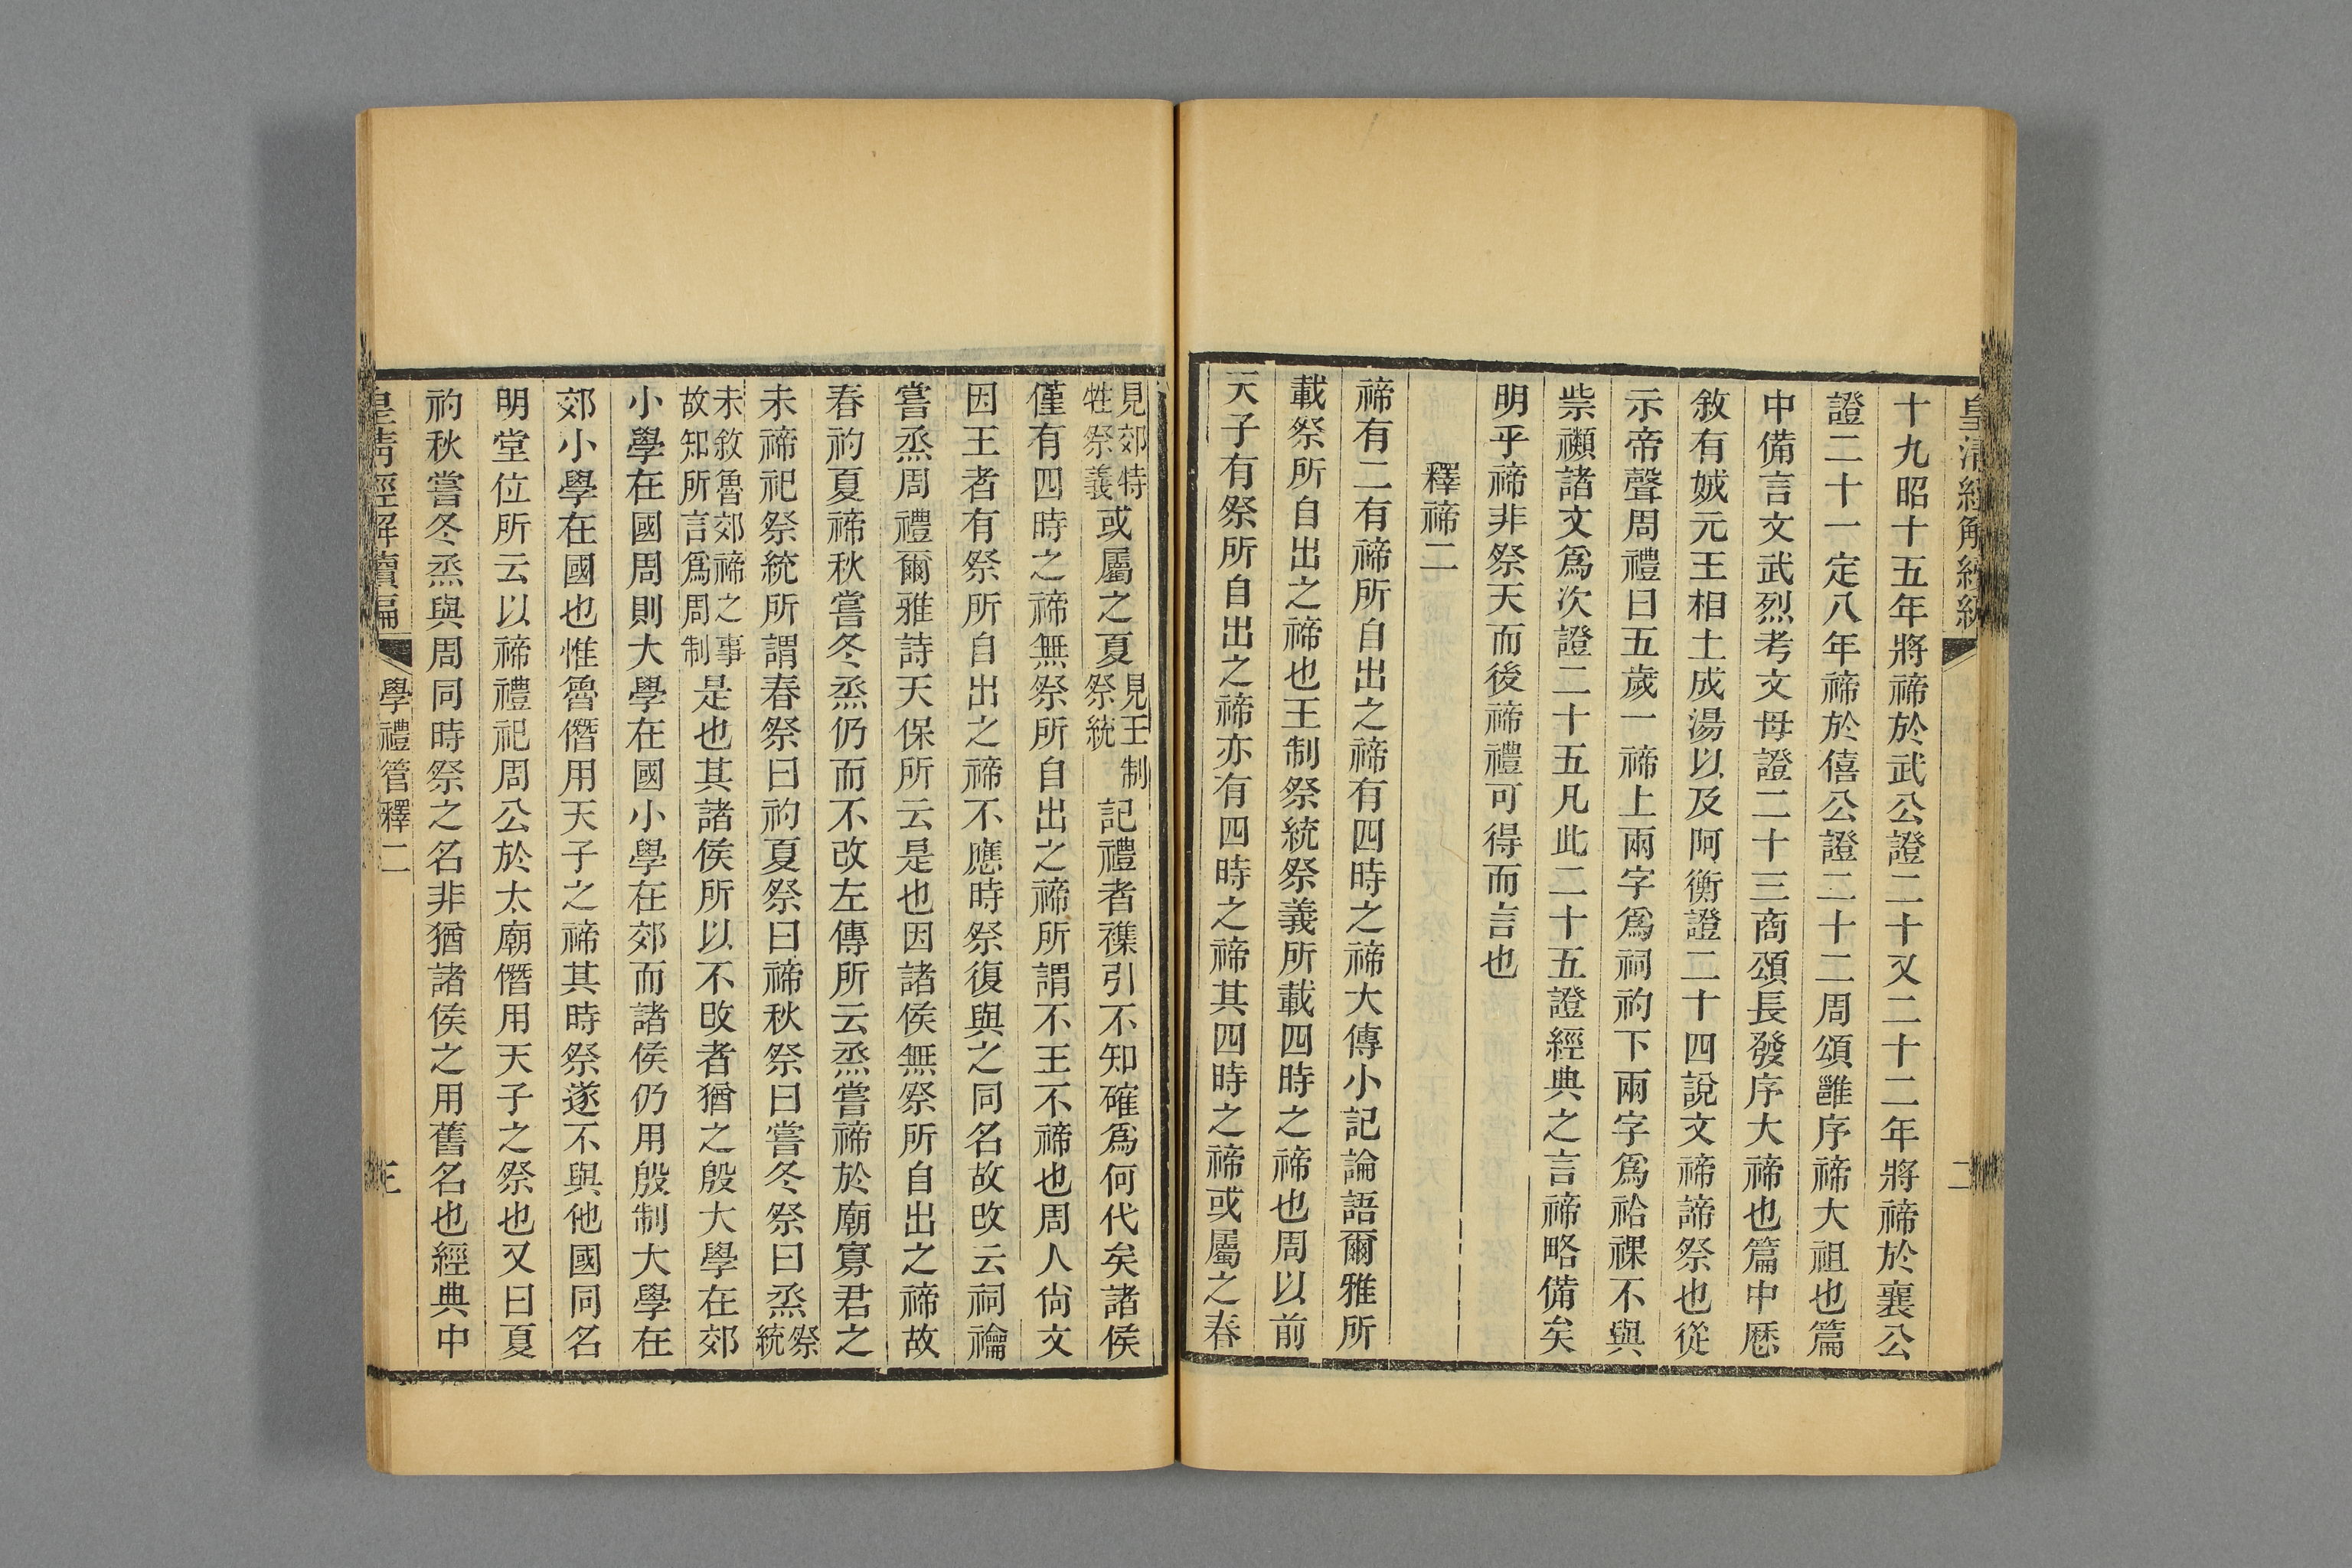 皇清經解續編
二
十九昭十五年將禘於武公證二十又二十二年將禘於襄公
證二十一定八年禘於僖公證二十二周頌雝序禘大祖也篇
中備言文武烈考文母證二十三商頌長發序大禘也篇中厯
敘有娀元王相土成湯以及阿衡證二十四說文禘諦祭也從
示帝聲周禮曰五歲一禘上兩字爲祠礿下兩字爲祫祼不與
祡禷諸文爲次證二十五凡此二十五證經典之言禘略備矣
明乎禘非祭天而後禘禮可得而言也
釋禘二
禘有二有禘所自出之禘有四時之禘大傳小記論語爾雅所
載祭所自出之禘也王制祭統祭義所載四時之禘也周以前
天子有祭所自出之禘亦有四時之禘其四時之禘或屬之春
見郊特牲祭義或屬之夏見王制祭統記禮者襍引不知確爲何代矣諸侯
僅有四時之禘無祭所自出之禘所謂不王不禘也周人尙文
因王者有祭所自出之禘不應時祭復與之同名故改云祠禴
嘗烝周禮爾雅詩天保所云是也因諸侯無祭所自出之禘故
春礿夏禘秋嘗冬烝仍而不改左傳所云烝嘗禘於廟寡君之
未禘祀祭統所謂春祭曰礿夏祭曰禘秋祭曰嘗冬祭曰烝祭統
未敘魯郊禘之事故知所言爲周制是也其諸侯所以不改者猶之殷大學在郊
小學在國周則大學在國小學在郊而諸侯仍用殷制大學在
郊小學在國也惟魯僭用天子之禘其時祭遂不與他國同名
明堂位所云以禘禮祀周公於太廟僭用天子之祭也又曰夏
礿秋嘗冬烝與周同時祭之名非猶諸侯之用舊名也經典中
皇淸經解續編
學禮管釋二
三